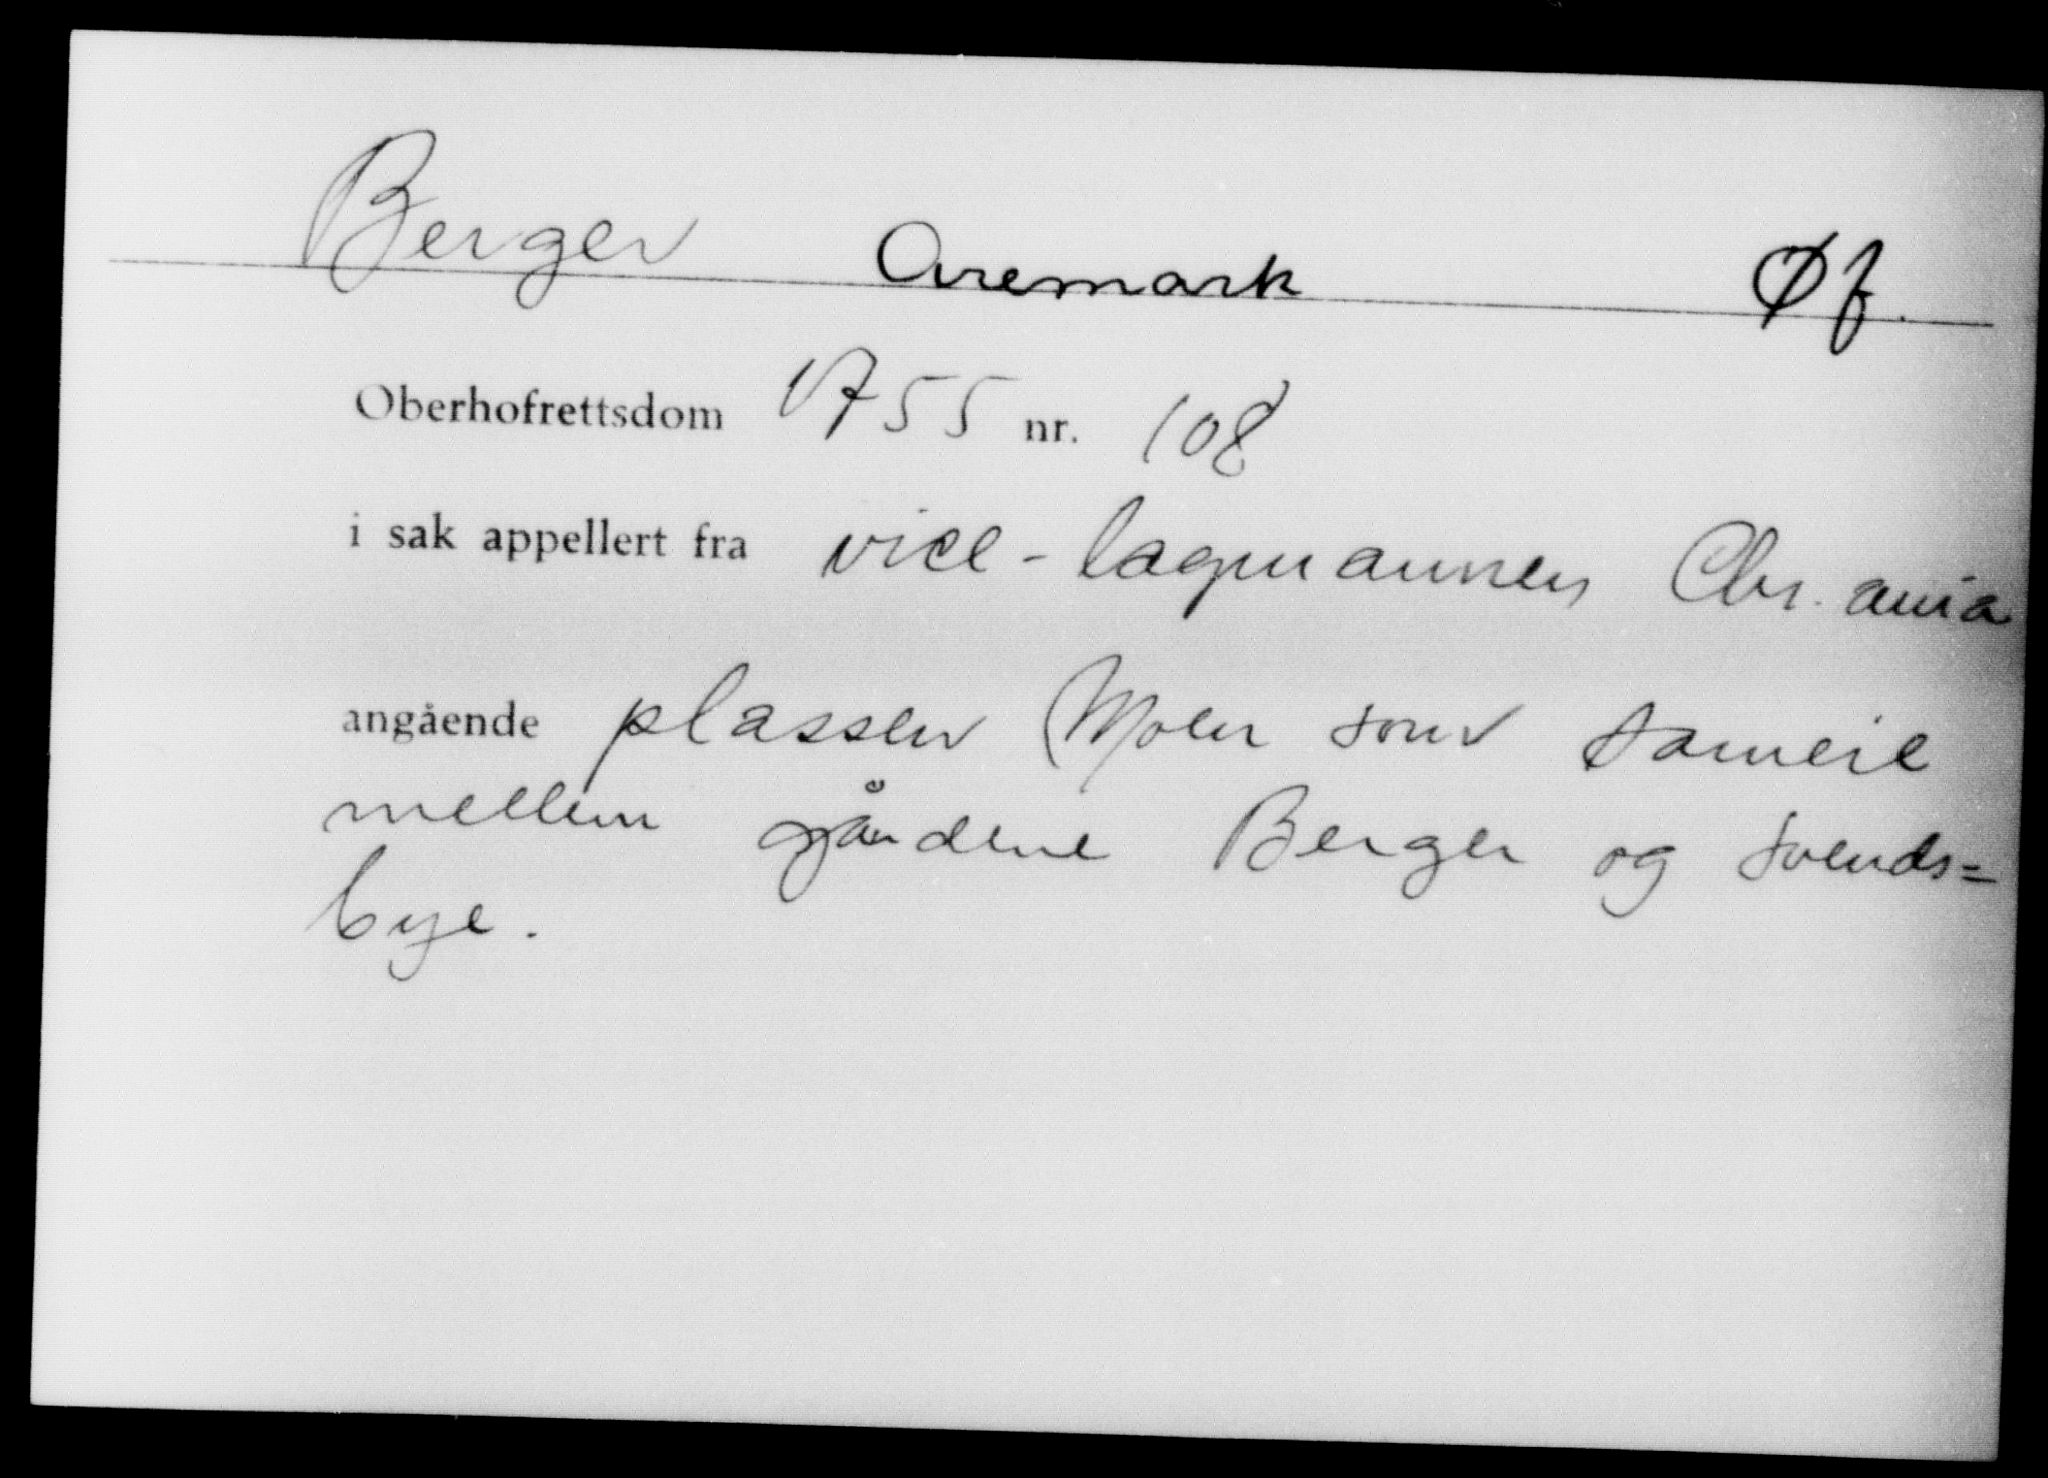 Berger Aremark Øf.
Oberhofrettsdom 1755 nr. 108
i sak appellert fra vice-lagmannen Chr.ania
angående plassen Moen som sameie
mellem gårdene Berger og Svends=
bye.